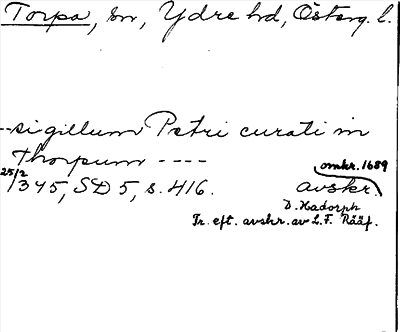 Torpa, sn, Ydre hd, Österg. l.
--sigillum Petri curati in
Thorpum ----
25/2 1345, SD 5, s. 416.
omkr. 1689
avskr.
D. Hadorph
Tr. eft. avskr. av L. F. Rääf.